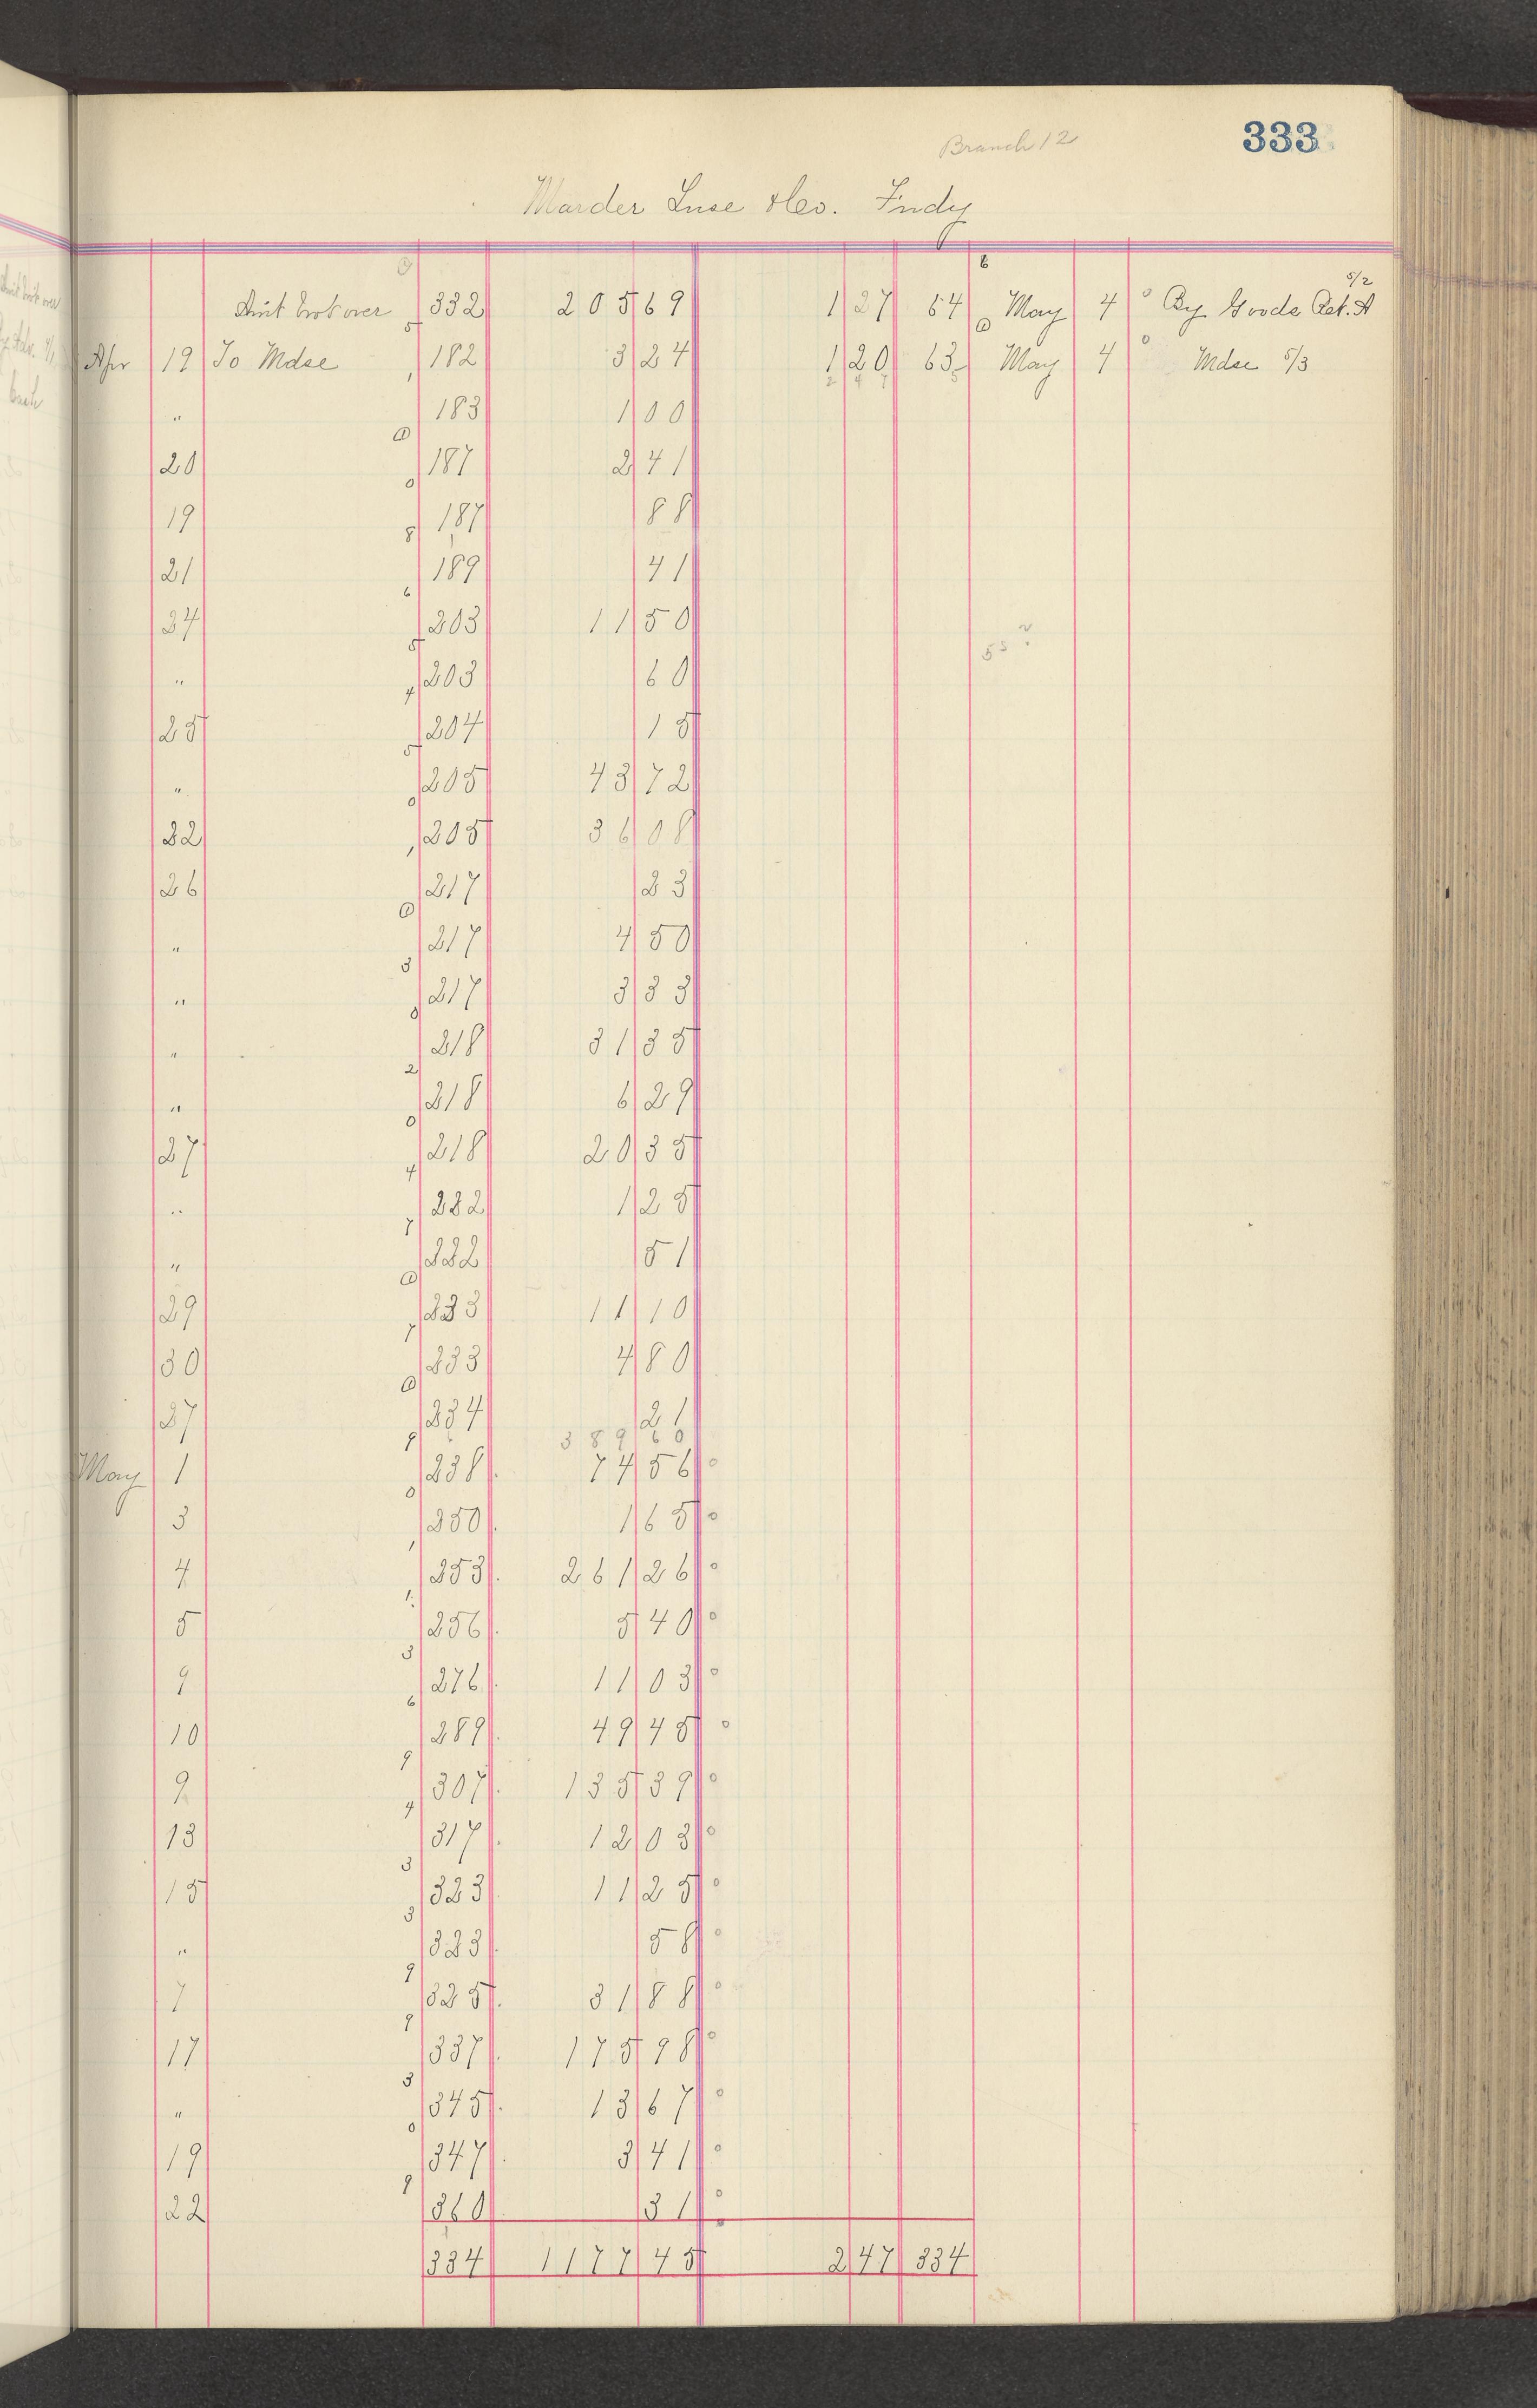 Branch 12 333
Marder Luse & Co. Indy
5/2
Amt brot over 332 205 69 1 27 64 May 4 By Goods Ret. A
Apr 19 To Mdse 182 3 24 1 20 63 May 4 Mdse 5/3
" 183 1 00
20 187 2 41
19 187 88
21 189 41
24 203 11 50
" 203 60
25 204 15
" 205 43 72
22 205 36 08
26 217 23
" 217 4 50
" 217 3 33
" 218 31 35
" 218 6 29
27 218 20 35
" 222 1 25
" 222 51
29 233 11 10
30 233 4 80
27 234 21
389 60
May 1 238 74 56
3 250 1 65
4 253 261 26
5 256 5 40
9 276 11 03
10 289 49 45
9 307 135 39
13 317 12 03
15 323 11 25
" 323 58
7 325 31 88
17 337 175 98
" 345 13 67
19 347 3 41
22 360 31
334 1177 45 2 47 334